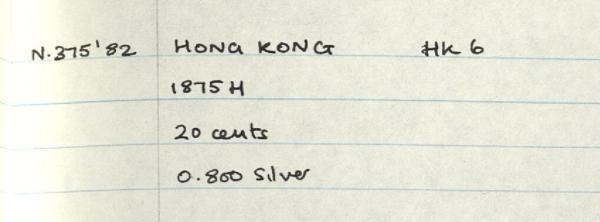 N.375'82 HONG KONG HK 6
1875 H
20 cents
0.800 Silver